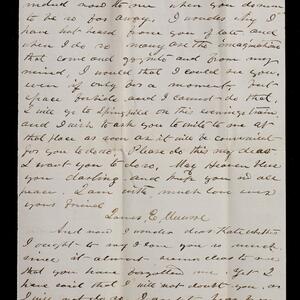 now to me when you
to be so far away. I wonder why I
have not heard from you of late and
when I do so many are the imaginations
that come and go, into and from my
mind, I would that I could see you,
were if only for a moment, but
space forbids and I cannot do that,
I will go to Springfield on this evenings train
and I wish to ask you to write to me at
that place as soon as it will be convenient
for you to do so. Please do this my dear
I want you to do so, May Heaven bless
you darling and keep you in all
peace I am with much love ever
your Friend
James E.
And now I wonder dear Kate whether
I ought to say I love you so much
since it almost seems close to me
that you have forgotten me. Yet I
have said that I will not doubt you, so
I will not do so. I